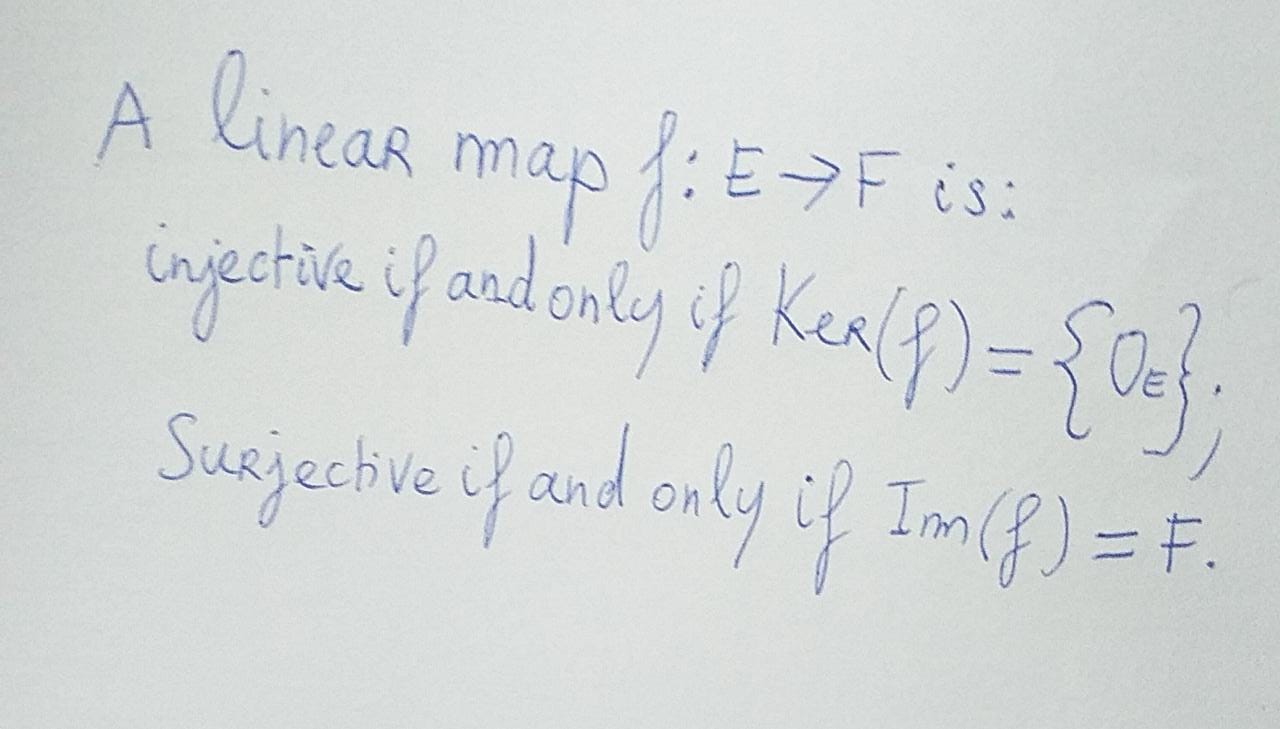 A linear map f: E → F is:
injective if and only if Ker(f) = {0_E};
Surjective if and only if Im(f) = F.